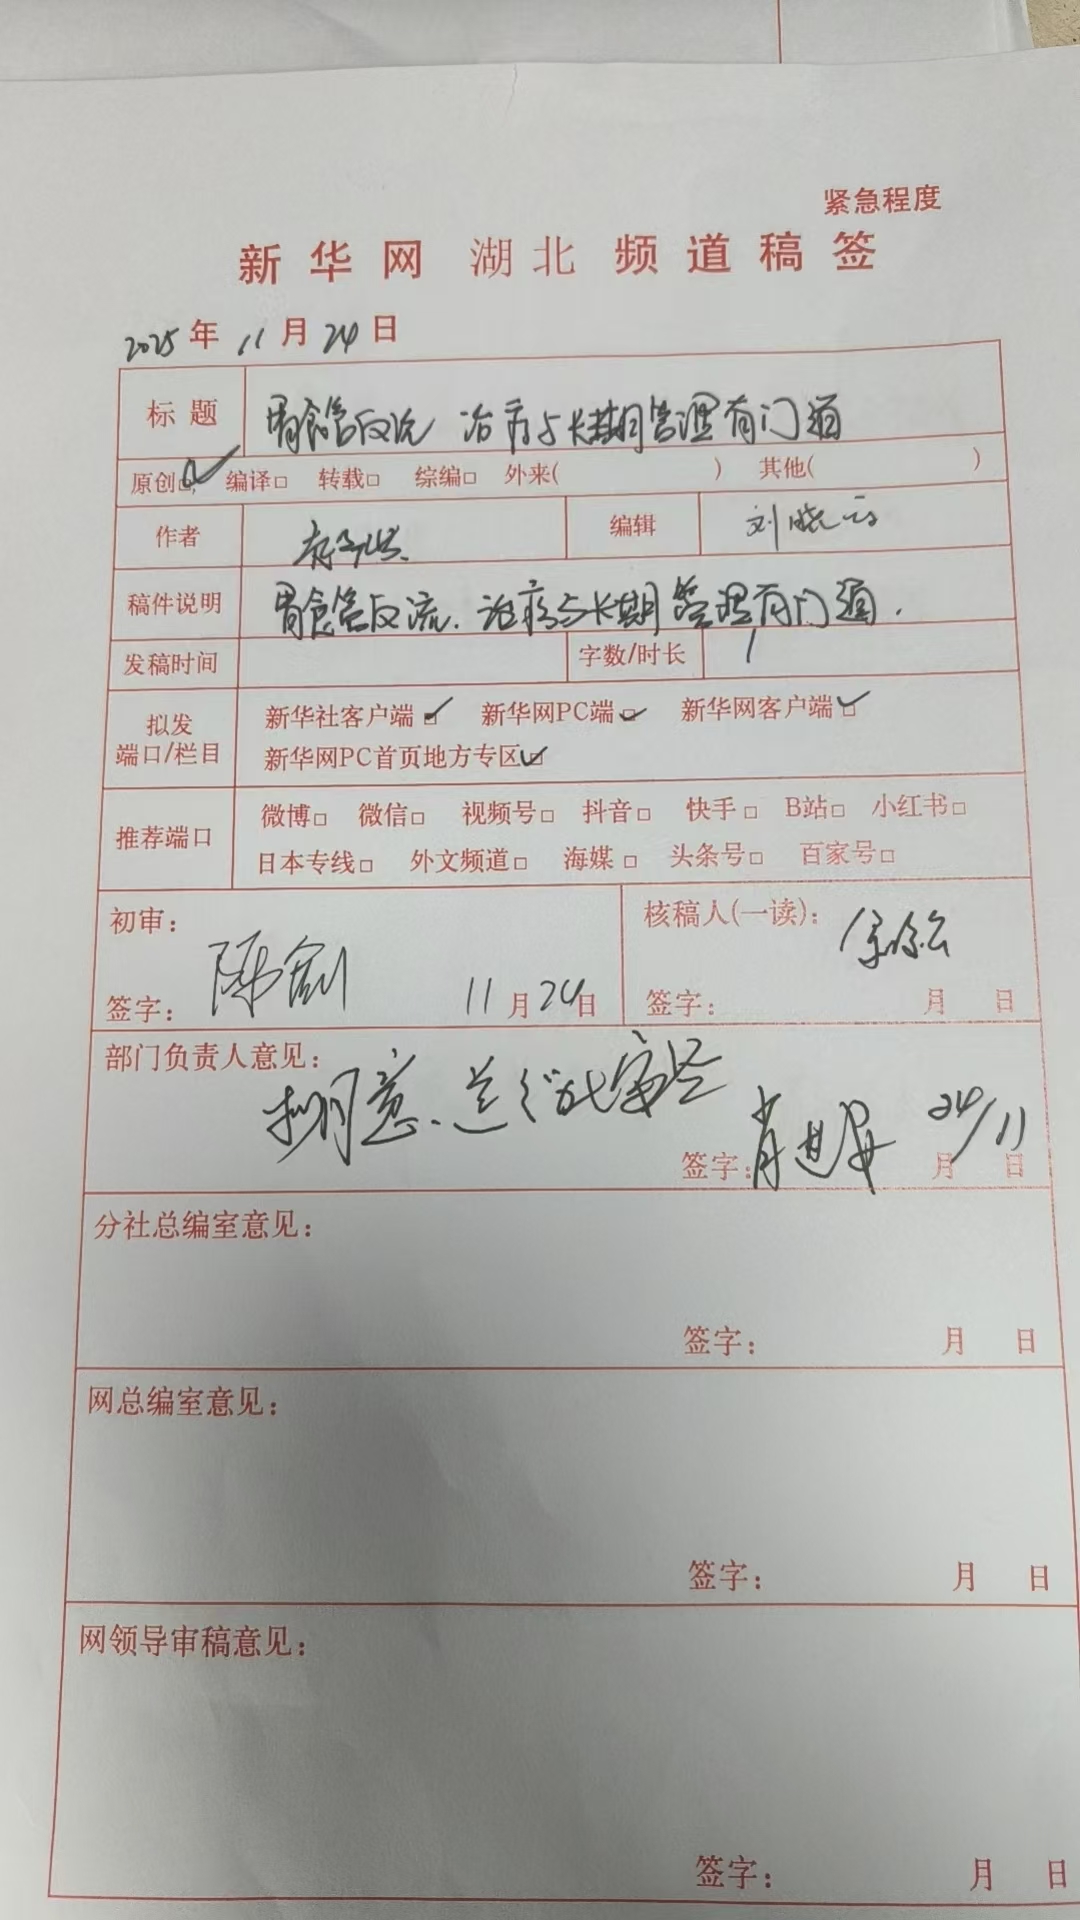 紧急程度
新华网 湖北 频道稿签
2025年 11月 24日
标题 胃食管反流 治疗与长期管理有门道
原创☑ 编译□ 转载□ 综编□ 外来( ) 其他( )
作者 编辑 刘晓云
稿件说明 胃食管反流.治疗与长期管理有门道.
发稿时间 字数/时长 1
拟发端口/栏目 新华社客户端☑ 新华网PC端☑ 新华网客户端☑
新华网PC首页地方专区☑
推荐端口 微博□ 微信□ 视频号□ 抖音□ 快手□ B站□ 小红书□
日本专线□ 外文频道□ 海媒□ 头条号□ 百家号□
初审: 核稿人(一读):
签字: 陈剑 11月24日 签字: 月 日
部门负责人意见:
签字: 24/11 月 日
分社总编室意见:
签字: 月 日
网总编室意见:
签字: 月 日
网领导审稿意见:
签字: 月 日